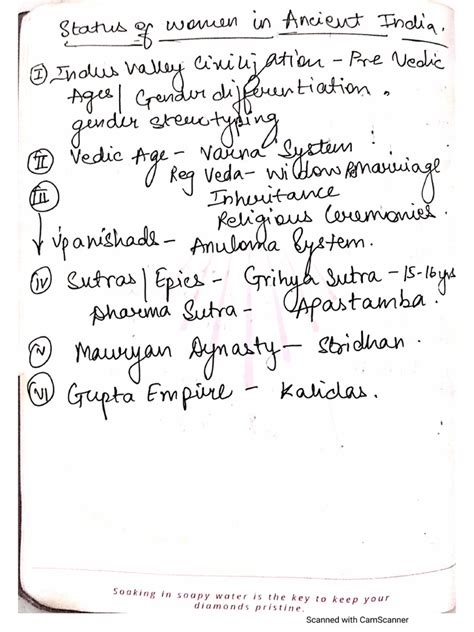 Status of women in Ancient India.
I Indus Valley Civilization - Pre Vedic
Ages / Gender differentiation.
gender stereotyping
II Vedic Age - Varna System
Reg Veda - Widow Marriage
III Inheritance
Religious Ceremonies.
Upanishads - Anuloma System.
IV Sutras / Epics - Grihya Sutra - 15-16 yrs
Dharma Sutra - Apastamba.
V Mauryan Dynasty - Stridhan.
VI Gupta Empire - Kalidas.
Soaking in soapy water is the key to keep your
diamonds pristine.
Scanned with CamScanner